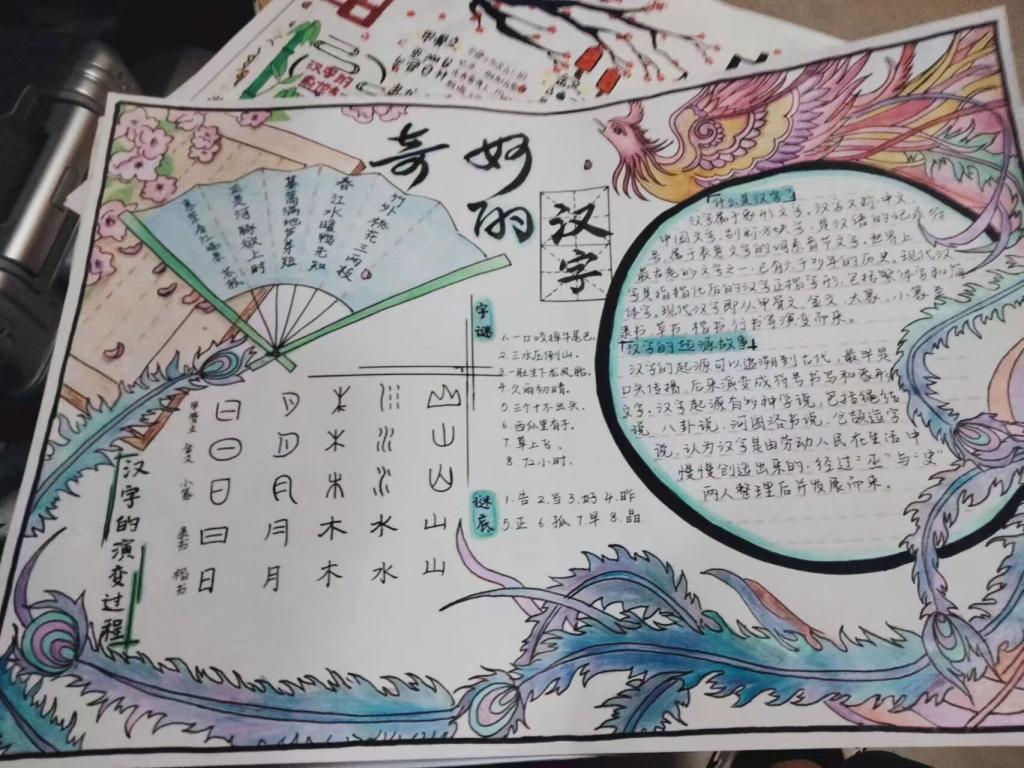 好奇的
汉字
竹外桃花三两枝
春江水暖鸭先知
蒌蒿满地芦芽短
正是河豚欲上时
字谜
1.一口咬掉牛尾巴.
2.三水压倒山.
3.一肚生下龙凤胎.
4.久雨初晴.
5.三个十不出头.
6.西瓜里有子.
7.草上飞.
8.72小时.
谜底
1.告 2.当 3.好 4.昨
5正 6.孤 7.早 8.晶
什么是汉字?
汉字属于象形文字,汉字又称中文,
中国文字,别称方块字,是汉语的记录符
号,属于表意文字的词素音节文字,世界上
最古老的文字之一,已有六千多年的历史,现代汉
字是指楷化后的汉字正楷字形,包括繁体字和简
体字,现代汉字即从甲骨文、金文、大篆、小篆、
隶书、草书、楷书、行书等演变而来。
汉字的起源故事
汉字的起源可以追溯到古代,最早是
口头传播,后来演变成符号书写和象形
文字,汉字起源有如种学说,包括绳结
说、八卦说、河图洛书说、仓颉造字
说,认为汉字是由劳动人民在生活中
慢慢创造出来的,经过“巫”与“史”
两人整理后并发展而来。
汉字的演变过程
甲骨文
金文
小篆
隶书 日 月 木 水 山
楷书 日 月 木 水 山